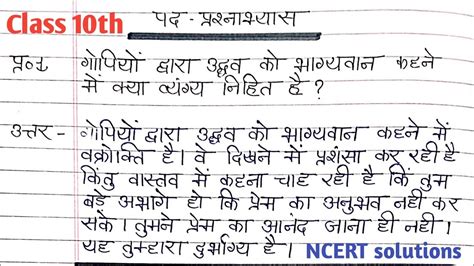 Class 10th
पद - प्रश्नाभ्यास
प्र०1 गोपियों द्वारा उद्धव को भाग्यवान कहने
में क्या व्यंग्य निहित है ?
उत्तर - गोपियों द्वारा उद्धव को भाग्यवान कहने में
वक्रोक्ति है। वे दिखने में प्रशंसा कर रही है
किंतु वास्तव में कहना चाह रही है कि तुम
बड़े अभागे हो कि प्रेम का अनुभव नहीं कर
सके। तुमने प्रेम का आनंद जाना ही नहीं।
यह तुम्हारा दुर्भाग्य है।
NCERT solutions